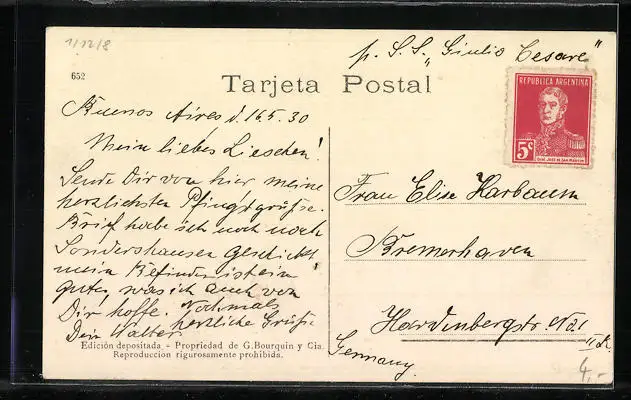 1/12/8
p. S. S. „Giulio Cesare"
652
Tarjeta Postal
REPUBLICA ARGENTINA
5c
GRAL. JOSE DE SAN MARTIN
Buenos Aires d. 16 5. 30
Mein liebes Lieschen!
Sende Dir von hier meine
herzlichsten Pfingstgrüße.
Brief habe ich noch nach
Sondershausen geschickt!
mein Befinden ist ein
gutes was ich auch von
Dir hoffe. Nochmals
herzliche Grüße
Dein Walter
Frau Elise Harbaum
Bremerhaven
Hardenbergstr. No 1
II
Germany.
Edición depositada - Propriedad de G. Bourquin y Cia.
Reproduccion rigurosamente prohibida.
4,-